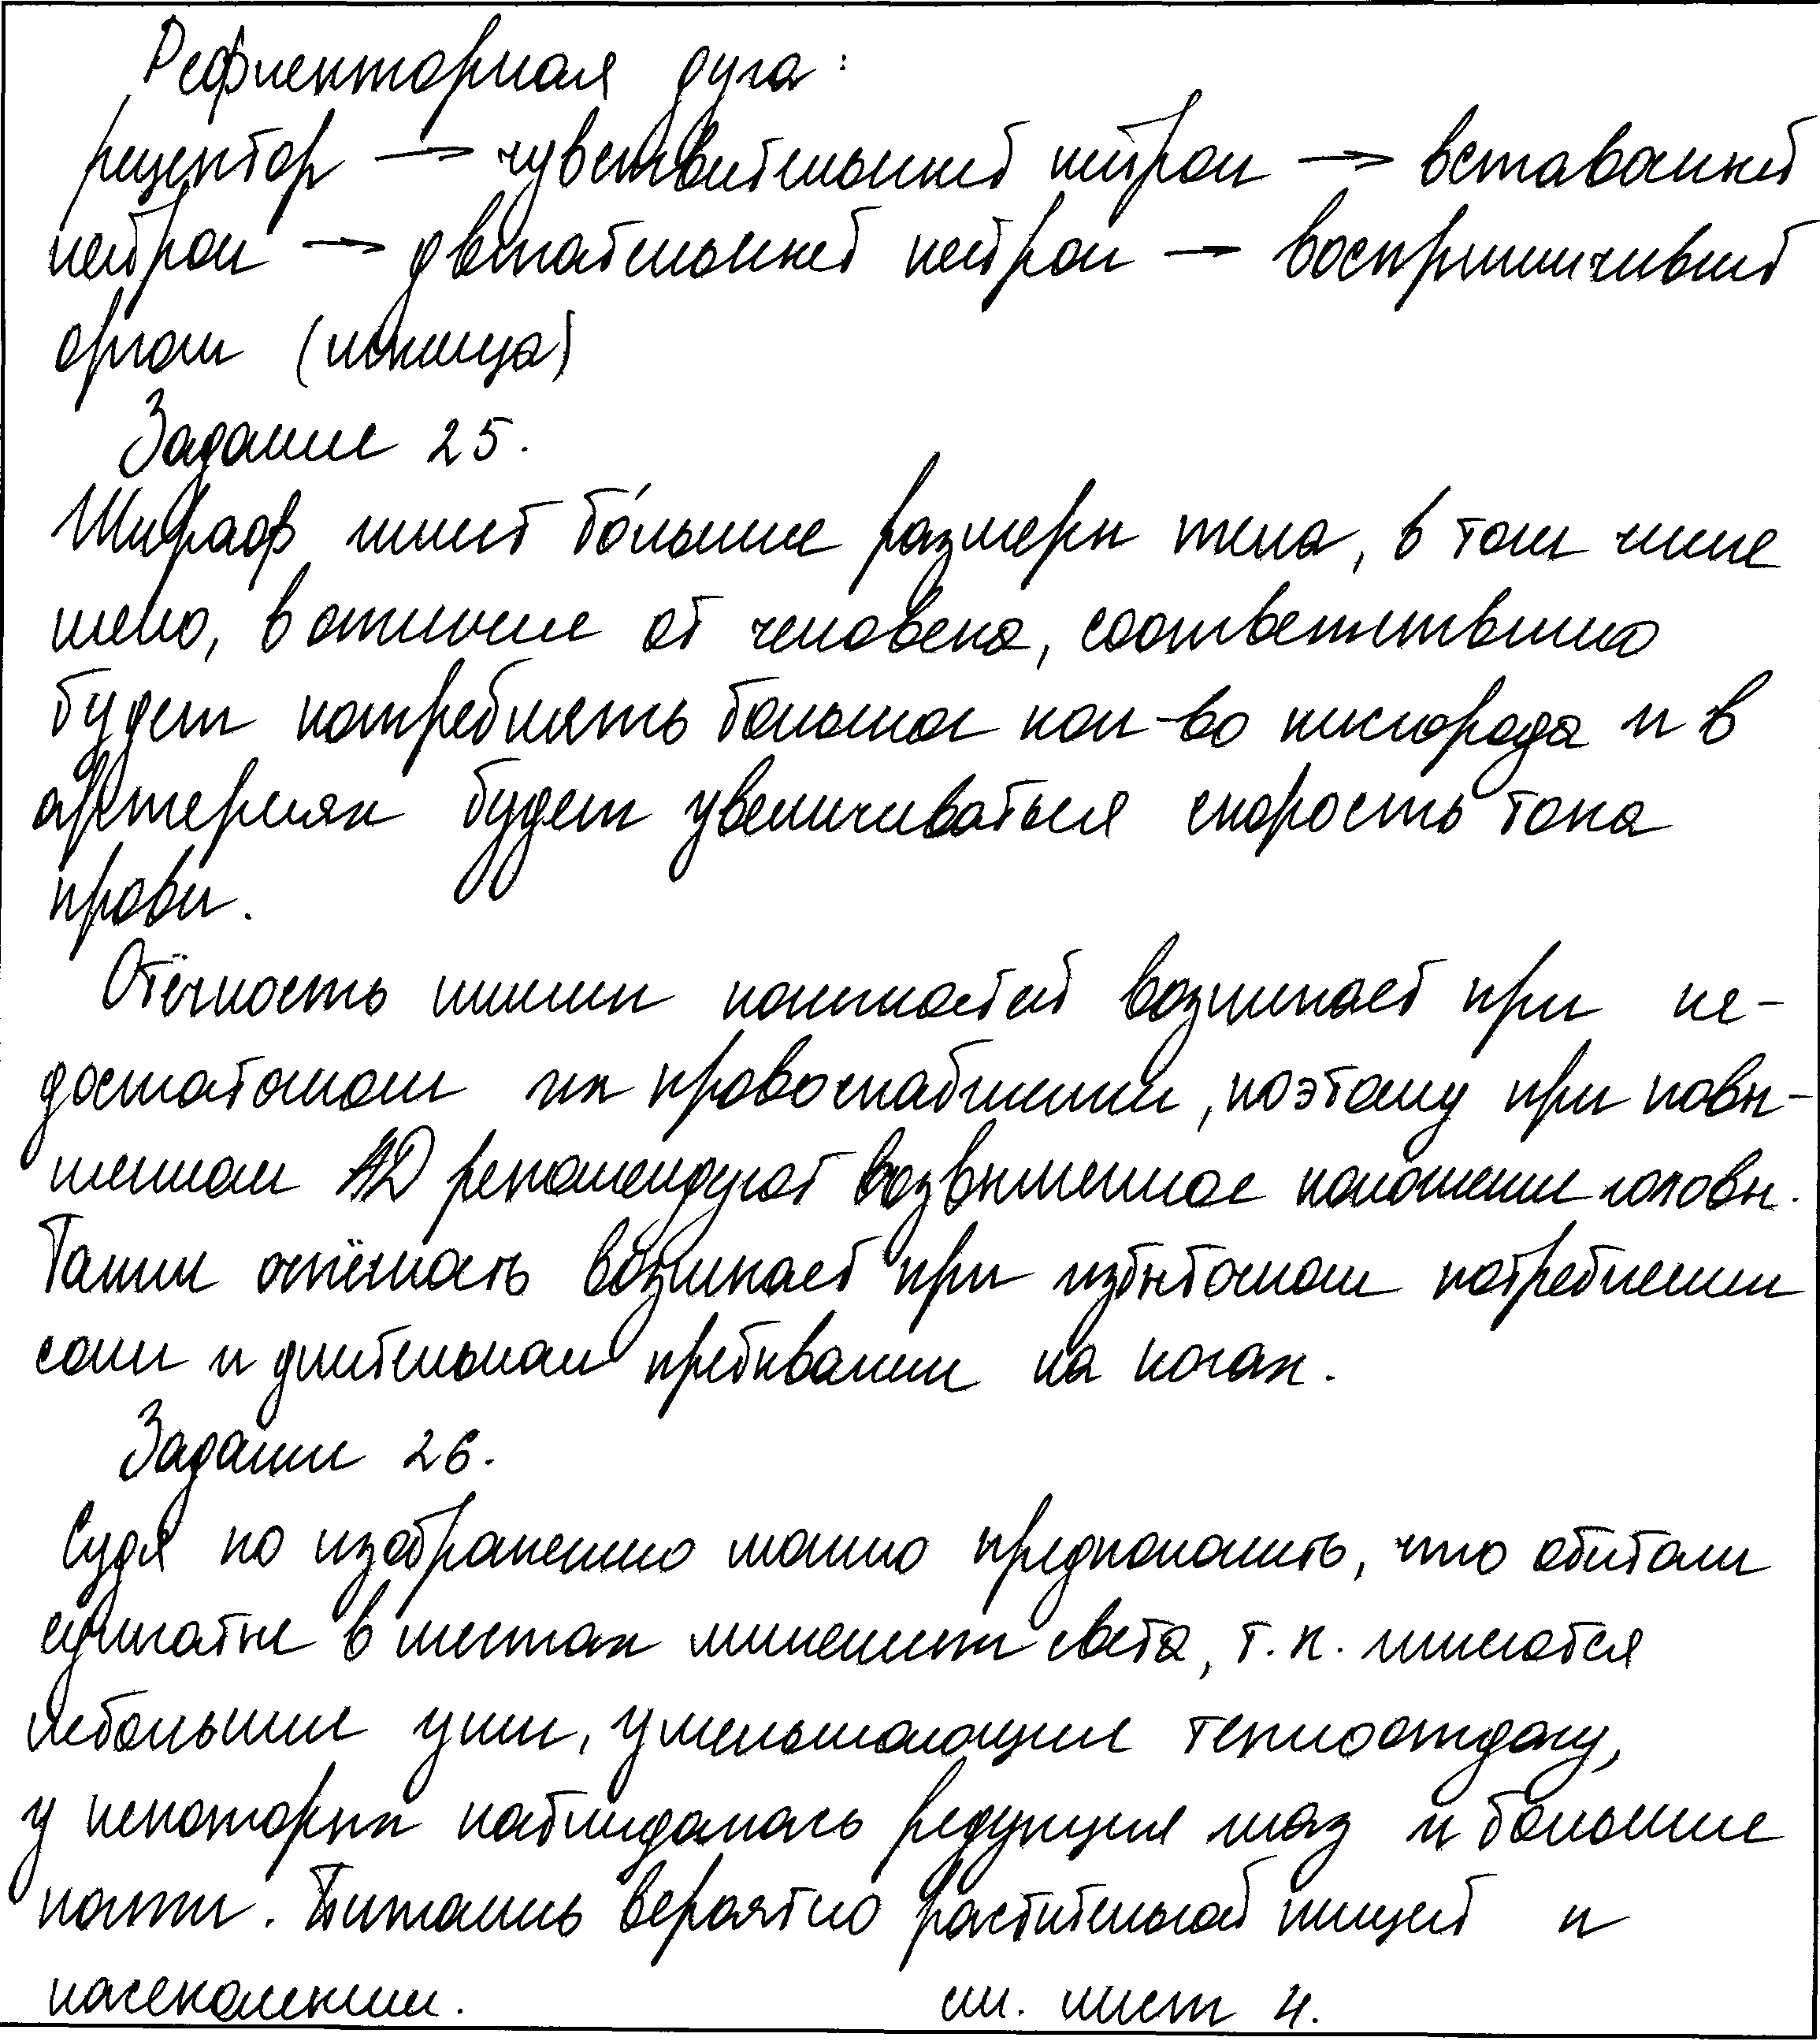 Рефлекторная дуга:
рецептор → чувствительный нейрон → вставочный
нейрон → двигательный нейрон → восприимчивый
орган (мышца)
Задание 25.
Жираф имеет бо́льшие размеры тела, в том числе
шею, в отличие от человека, соответственно
будет потреблять большое кол-во кислорода и в
артериях будет увеличиваться скорость тока
крови.
Отёчность нижних конечностей возникает при не-
достаточном их кровоснабжении, поэтому при повы-
шенном АД рекомендуют возвышенное положение головы.
Также отёчность возникает при избыточном потреблении
соли и длительном пребывании на ногах.
Задание 26.
Судя по изображению можно предположить, что обитали
сумчатые в местах лишения света, т.к. имеются
небольшие уши, уменьшающие теплоотдачу,
у некоторых наблюдалась редукция глаз и большие
когти. Питались вероятно растительной пищей и
насекомыми. см. лист 4.